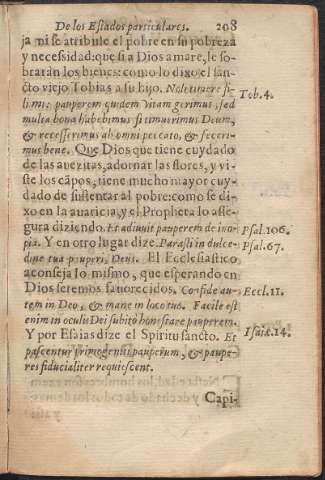 De los Estados particulares. 208
ja ni se atribule el pobre en su pobreza
y necessidad: que si a Dios amare, le so-
braràn los bienes: como lo dixo el san-
cto viejo Tobias a su hijo. Noli timere fi- Tob. 4.
li mi: pauperem quidem vitam gerimus, sed
multa bona habebimus si timuerimus Deum,
& recesserimus ab omni peccato, & feceri-
mus bene. Que Dios que tiene cuydado
de las avezitas, adornar las flores, y vi-
ste los cãpos, tiene mucho mayor cuy-
dado de sustentar al pobre: como se di-
xo en la avaricia, y el Propheta lo asse-
gura diziendo. Et adiuvit pauperem de ino- Psal. 106.
pia. Y en otro lugar dize. Parasti in dulce- Psal. 67.
dine tua pauperi, Deus. El Ecclesiastico
aconseja lo mismo, que esperando en
Dios seremos favorecidos. Confide au- Eccl. 11.
tem in Deo, & mane in loco tuo. Facile est
enim in oculis Dei subitò honestare pauperem.
Y por Esaias dize el Spiritu sancto. Et Isaiæ. 14.
pascentur primogeniti pauperum, & paupe-
res fiducialiter requiescent.
Capi-